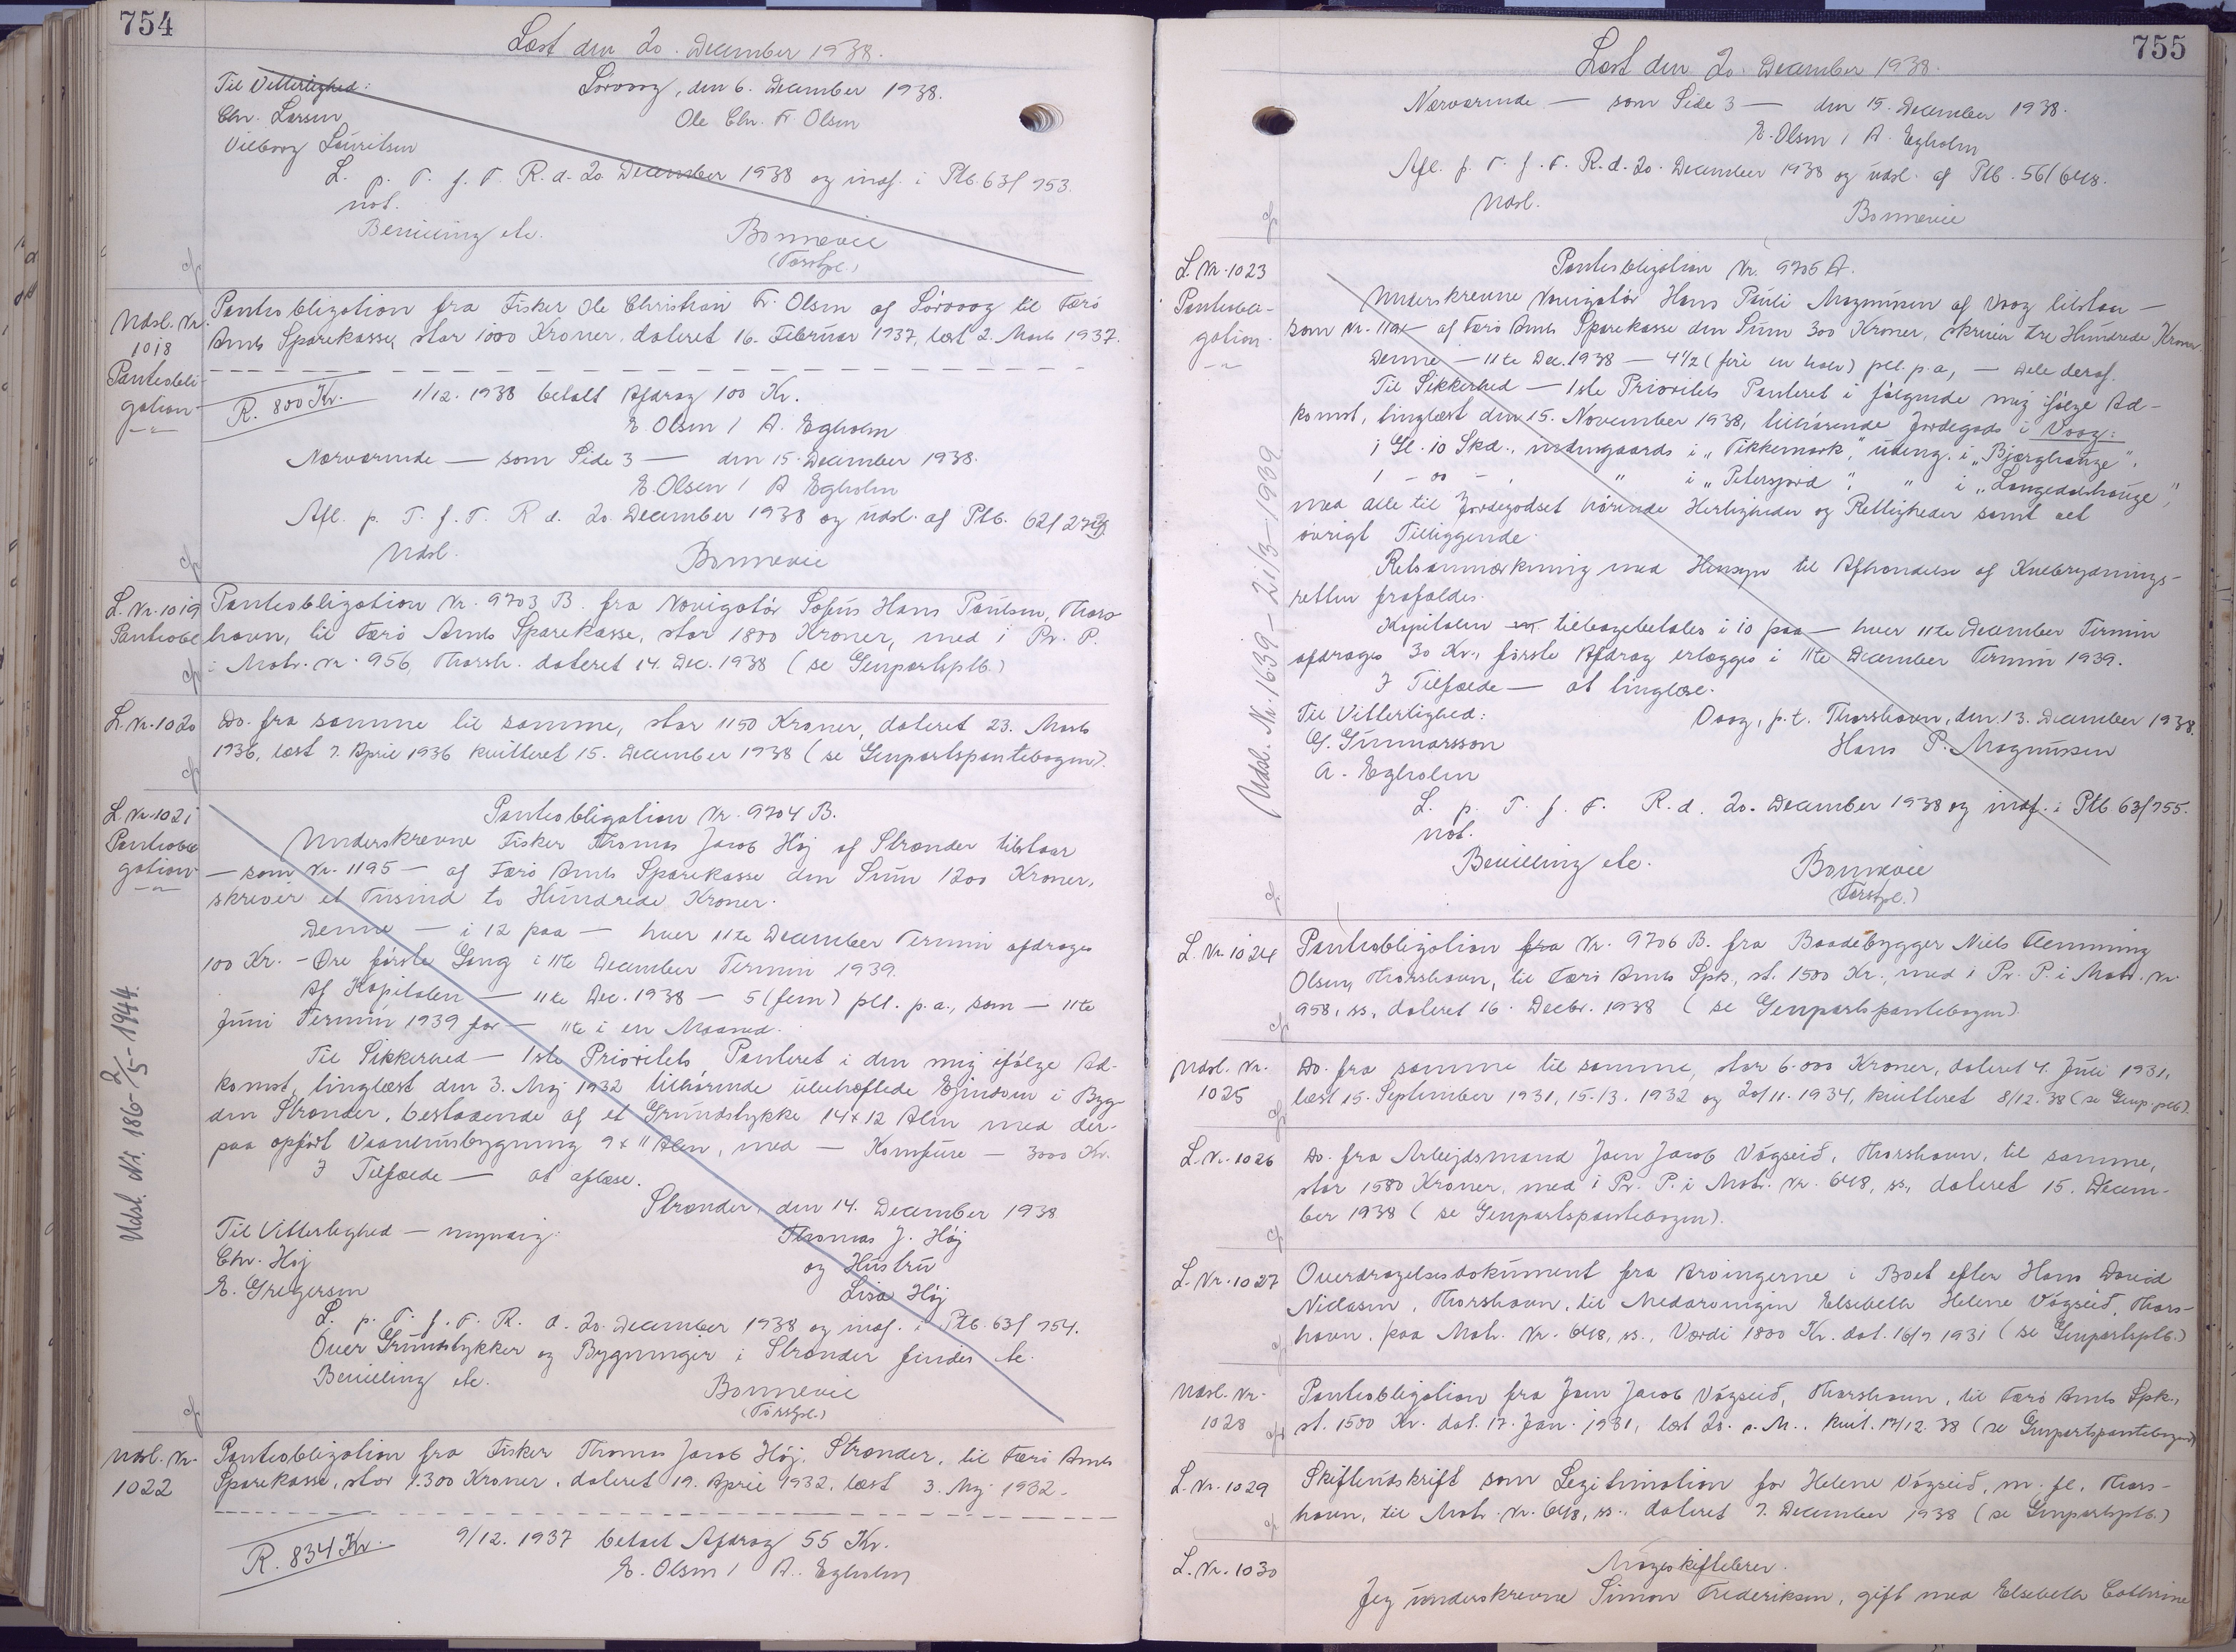 754
Læst den 20. December 1938.
Til Vitterlighed: Sörvaag, den 6. December 1938.
Chr. Larsen Ole Chr. Fr. Olsen
Vilborg Lauritsen
L. p. T. f. F. R. d. 20 December 1938 og indf. i Ptb. 63/753.
not.
Bevilling etc. Bonnevie
(Forstpl.)
Udsl. Nr. 1018 Pantobligation
Pantobligation fra Fisker Ole Christian Fr. Olsen af Sörvaag til Færö
Amts Sparekasse, stor 1000 Kroner, dateret 16. Februar 1937, læst 2. Marts 1937.
R. 800 Kr. 1/12. 1938 betalt Afdrag 100 Kr.
E. Olsen / A. Egholm
Nærværende — som Side 3 — den 15. December 1938.
E. Olsen / A Egholm
Afl. p. T. f. F. R d. 20. December 1938 og udsl. af Ptb. 62/
Udsl. Bonnevie
L. Nr. 1019 Pantobl
Pantobligation Nr. 9703 B. fra Navigatör Sofus Hans Paulsen, Thors-
havn, til Færö Amts Sparekasse, stor 1800 Kroner, med i Pr. P.
i Matr. Nr. 956, Thorsh. dateret 14. Dec. 1938 (se Genpartsptb.)
L. Nr. 1020 Do. fra samme til samme, stor 1150 Kroner, dateret 23. Marts
1936, læst 7. April 1936 kvitteret 15. December 1938 (se Genpartspantebogen).
L. Nr. 1021 Pantobligation
Pantobligation Nr. 9704 B.
Underskrevne Fisker Thomas Jacob Höj af Strænder tilstaar
— som Nr. 1195 — af Færö Amts Sparekasse den Sum 1200 Kroner,
skriver et Tusind to Hundrede Kroner.
Denne — i 12 paa — hver 11te December Termin afdrages
100 Kr. - Öre förste Gang i 11te December Termin 1939.
Af Kapitalen — 11te Dec. 1938 — 5 (fem) pCt. p. a., som — 11te
Juni Termin 1939 for — 11te i en Maaned.
Til Sikkerhed — 1ste Prioritets Panteret i den mig ifölge Ad-
komst, tinglæst den 3. Maj 1932 tilhörende ubehæftede Ejendom i Byg-
den Strænder, bestaaende af et Grundstykke 14 x 12 Alen med der-
paa opfört Vaaningsbygning 9 x 11 Alen, med — Komfure — 3000 Kr.
I Tilfælde — at aflæse.
Strænder, den 14. December 1938
Til Vitterlighed — myndig: Thomas J. Höj
Chr. Höj og Hustru
E. Gregersen Lisa Höj
L. p. T. f. F. R. d. 20. December 1938 og indf. i Ptb. 63/754.
Over Grundstykker og Bygninger i Strænder findes etc.
Bevilling etc. Bonnevie
(Forstpl.)
Udsl. Nr. 186-2/5-1944.
Udsl. Nr. 1022 Pantobligation fra Fisker Thomas Jacob Höj, Strænder, til Færö Amts
Sparekasse, stor 1.300 Kroner, dateret 19. April 1932, læst 3. Maj 1932.
R. 834 Kr. 9/12. 1937 betalt Afdrag 55 Kr.
E. Olsen / A. Egholm
755
Læst den 20. December 1938.
Nærværende — som Side 3 — den 15. December 1938.
E. Olsen / A. Egholm
Afl. p. T. f. F. R. d. 20. December 1938 og udsl. af Ptb. 56/648.
Udsl. Bonnevie
L. Nr. 1023 Pantobligation
Pantobligation Nr. 9705 A.
Underskrevne Navigatör Hans Pauli Magnussen af Vaag tilstaar —
som Nr. 1194 — af Færö Amts Sparekasse den Sum 300 Kroner, skriver tre Hundrede Kroner.
Denne — 11te Dec. 1938 — 4 1/2 (fire en halv) pCt. p. a, — Dele deraf.
Til Sikkerhed — 1ste Prioritets Panteret i fölgende mig ifölge Ad-
komst, tinglæst den 15. November 1938, tilhörende Jordegods i Vaag:
1 Gl. 10 Skd., indengaards i „Tikkemark", udeng. i „Bjærghauge",
1 - 00 - , " i „Petersjord", " i „Langedalshauge",
med alle til Jordegodset hörende Herligheder og Rettigheder samt alt
övrigt Tilliggende.
Retsanmærkning med Hensyn til Afhændelse af Kuebrydnings-
retten frafaldes.
Kapitalen tilbagebetales i 10 paa — hver 11te December Termin
afdrages 30 Kr., förste Afdrag erlægges i 11te December Termin 1939.
I Tilfælde — at tinglæse.
Til Vitterlighed: Vaag, p. t. Thorshavn, den 13. December 1938.
G. Gunnarsson Hans P. Magnussen
A. Egholm
L. p. T. f. F. R. d. 20. December 1938 og indf. i Ptb 63/755.
not.
Bevilling etc. Bonnevie
(Forstpl.)
Udsl. Nr. 1639 - 21/3-1939
L. Nr. 1024 Pantobligation fra Nr. 9706 B. fra Baadebygger Niels Flemming
Olsen, Thorshavn, til Færö Amts Spk, st. 1500 Kr., med i Pr. P. i Matr. Nr.
958, ss, dateret 16. Decbr. 1938 (se Genpartspantebogen).
Udsl. Nr. 1025 Do. fra samme til samme, stor 6.000 Kroner, dateret 4. Juli 1931,
læst 15. September 1931, 15./3. 1932 og 20/11. 1934, kvitteret 8/12. 38 (se Genp. ptb).
L. Nr. 1026 Do. fra Arbejdsmand Joen Jacob Vágseið, Thorshavn, til samme,
stor 1580 Kroner, med i Pr. P. i Matr. Nr. 648, ss, dateret 15. Decem-
ber 1938 (se Genpartspantebogen).
L. Nr. 1027 Overdragelsesdokument fra Arvingerne i Boet efter Hans David
Niclasen, Thorshavn, til Medarvingin Elsebeth Helene Vágseið, Thors-
havn, paa Matr. Nr. 648, ss., Værdi 1800 Kr. dat. 16/7 1931 (se Genpartsptb.)
Udsl. Nr. 1028 Pantobligation fra Joen Jacob Vágseið, Thorshavn, til Færö Amts Spk.,
st. 1500 Kr. dat. 17. Jan. 1931, læst 20. s. M., kvit. 17/12. 38 (se Genpartspantebogen)
L. Nr. 1029 Skifteudskrift som Legitimation for Helene Vágseið, m. fl. Thors-
havn, til Matr. Nr. 648, ss., dateret 7. December 1938 (se Genpartsptb.)
L. Nr. 1030 Mageskiftebrev.
Jeg underskrevne Simon Frederiksen, gift med Elsebeth Cathrine